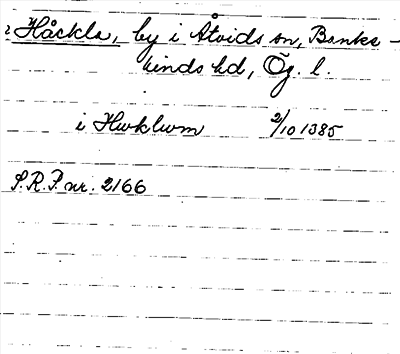 Håckla, by i Åtvids sn, Banke-
kinds hd, Ög. l.
i Hwklwm 2/10 1385
S.R.P. nr. 2166